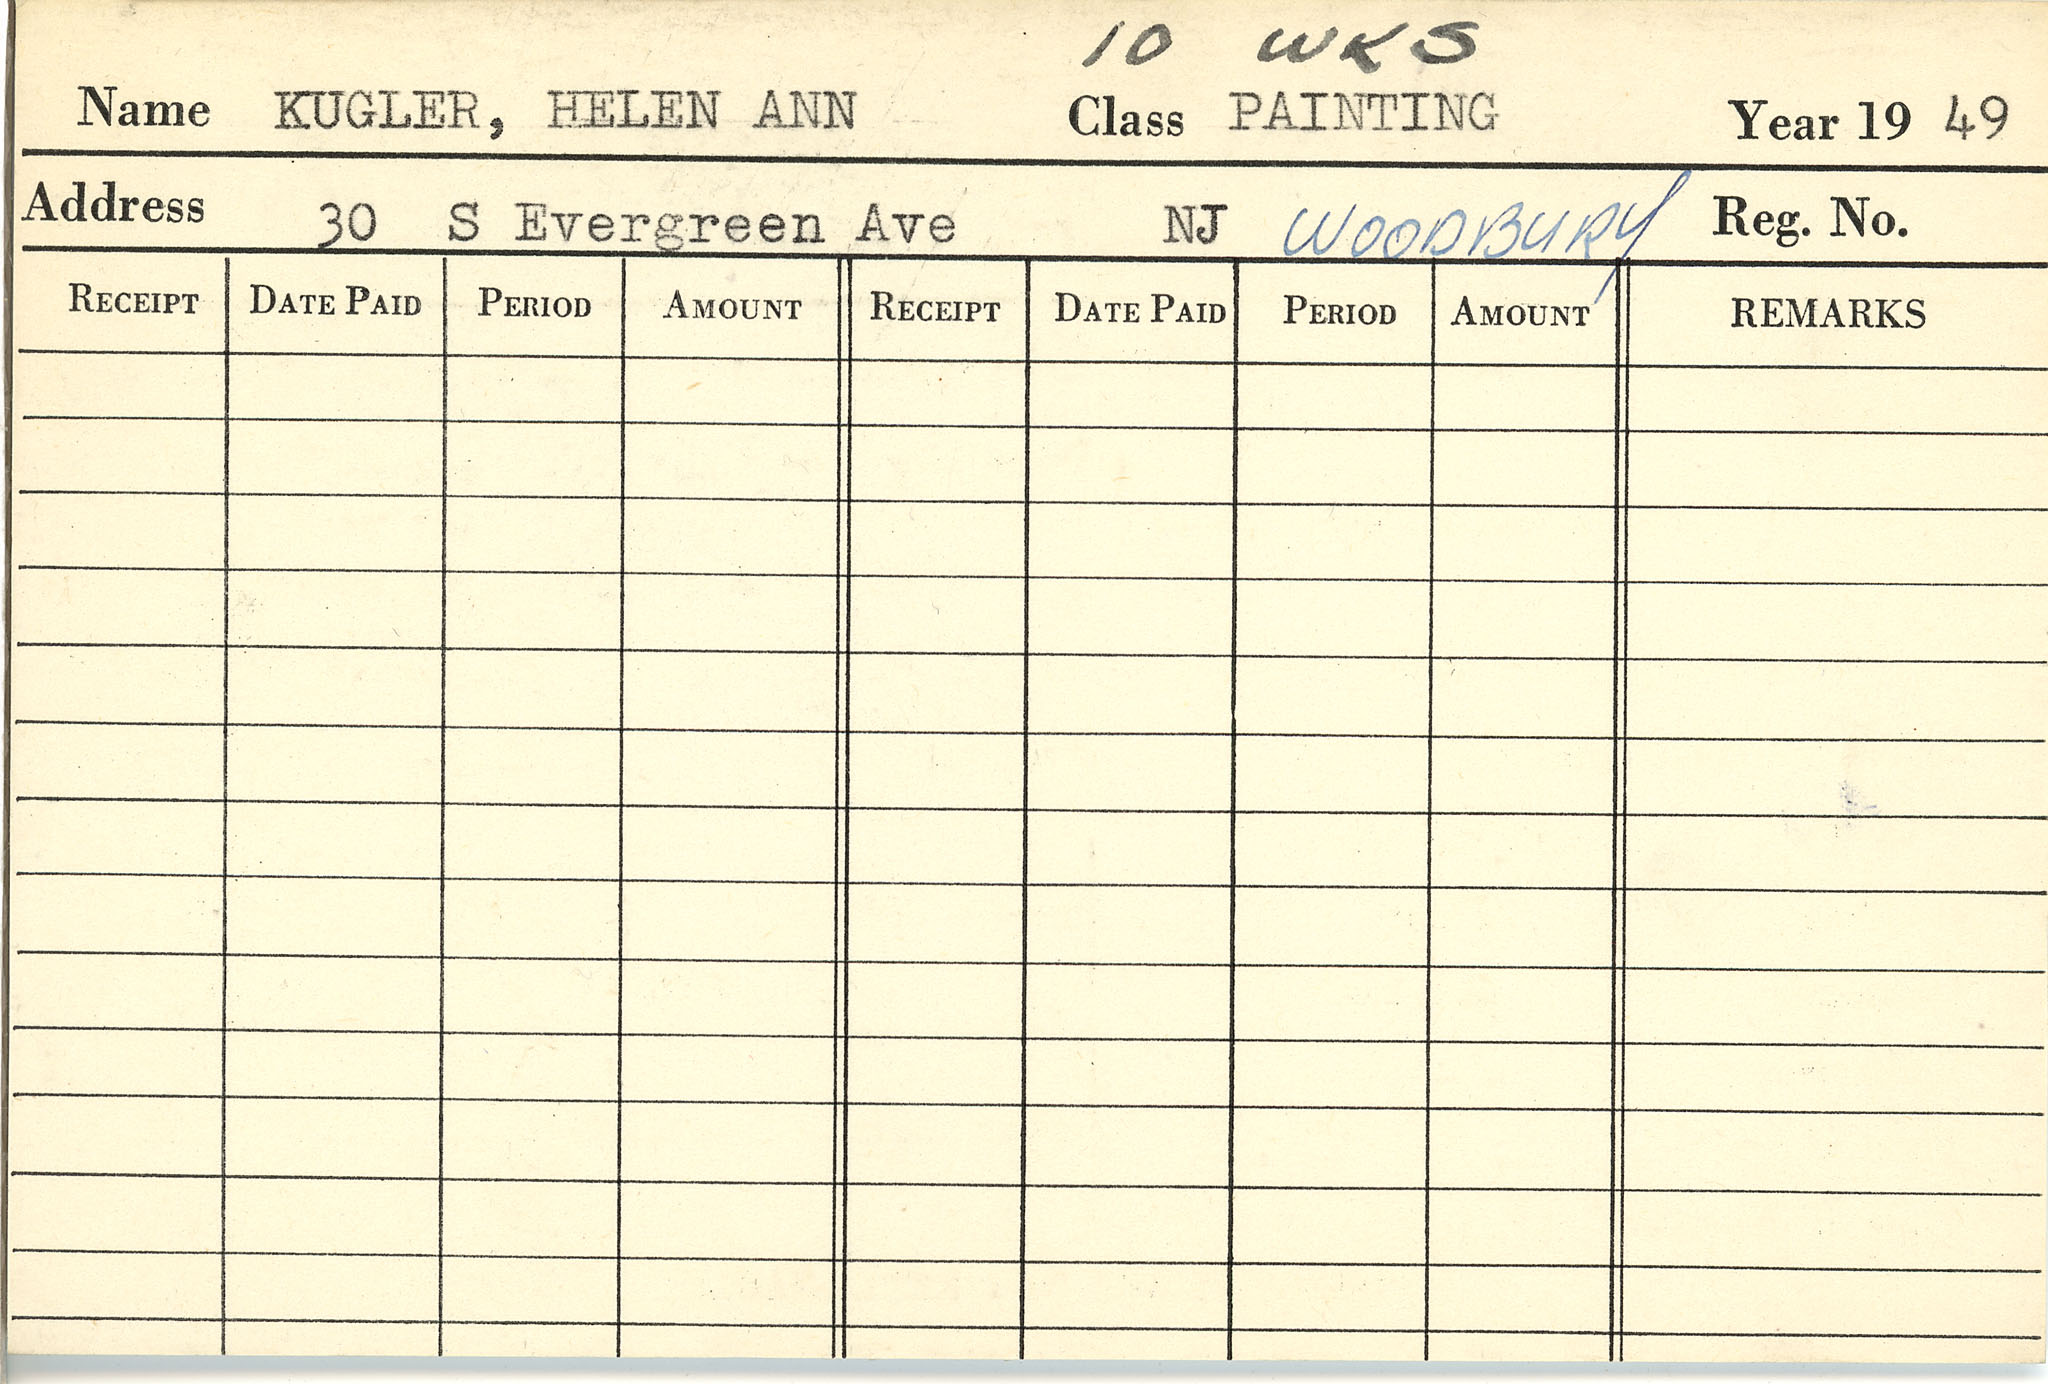 10 WKS
Name KUGLER, HELEN ANN Class PAINTING Year 19 49
Address 30 S Evergreen Ave NJ WOODBURY Reg. No.
RECEIPT DATE PAID PERIOD AMOUNT RECEIPT DATE PAID PERIOD AMOUNT REMARKS